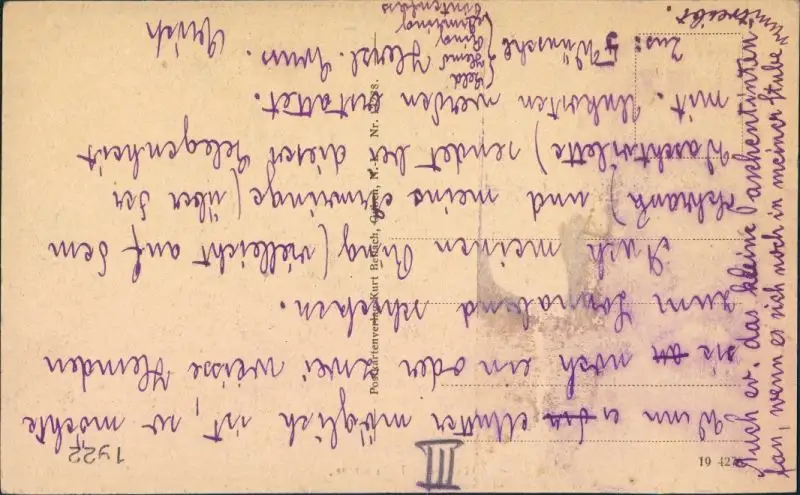 1922
III
Wenn es der Mutter möglich ist, so möchte
sie noch ein oder zwei weisse Hemden
zum Sonnabend schicken.
Auch meinen Ring (vielleicht auf dem
Schrank) und meine (über der
Waschtoilette) sendet bei dieser Gelegenheit
mit. Unkosten werden erstattet.
Zus: 5 Wünsche
Geld
Hemd
Ring
Herzl. Gruss.
Erich
Auch ev. das kleine Taschentinten
fass, wenn es sich noch in meiner Stube
Postkartenverlag Kurt Bellach, Guben, N.-L. Nr.
19 427